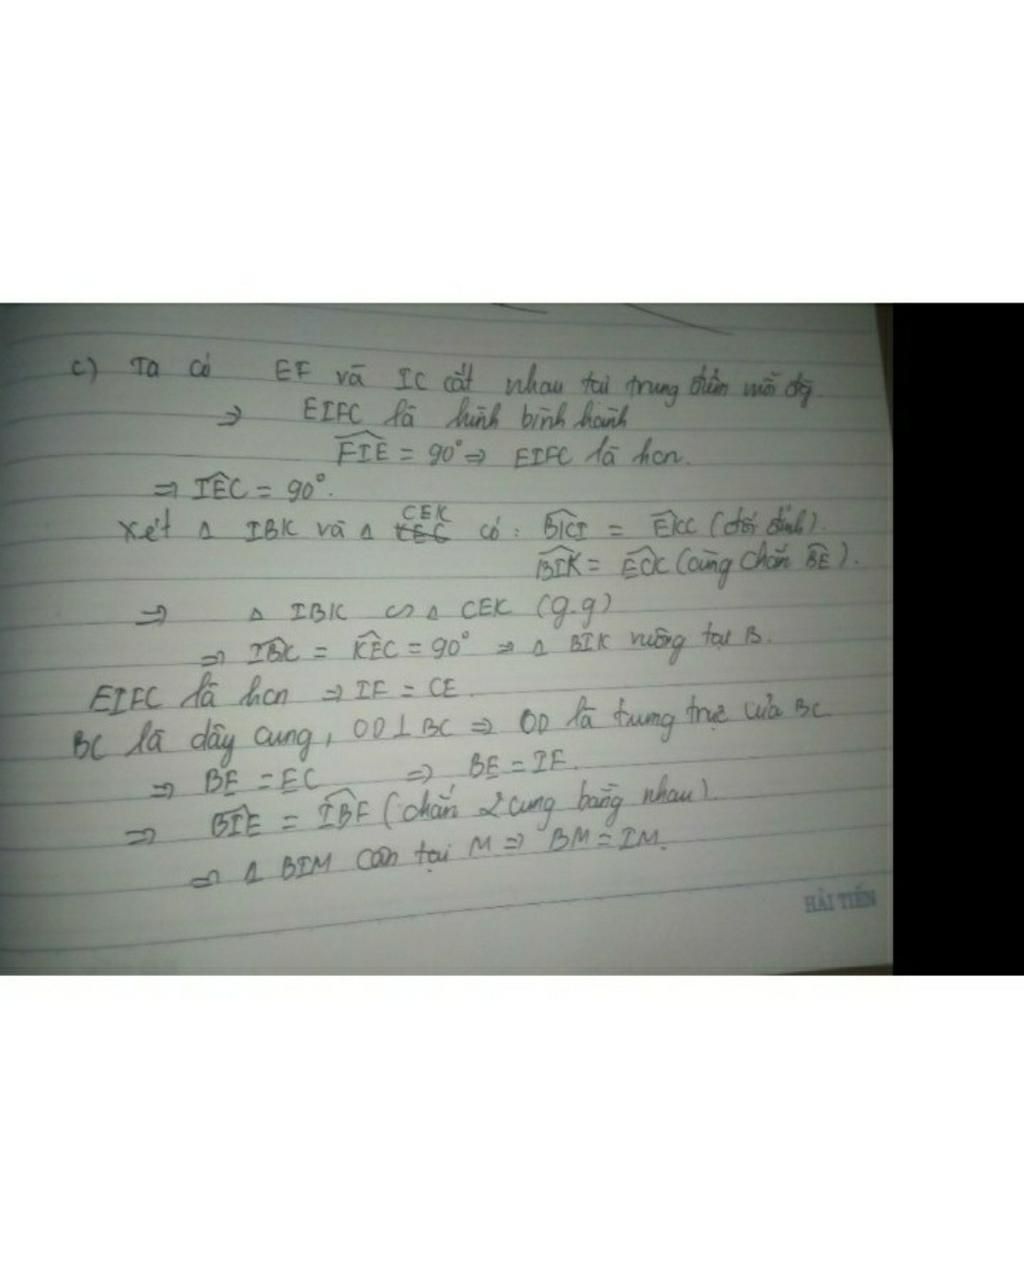 c) Ta có EF và IC cắt nhau tại trung điểm mỗi đg
⇒ EIFC là hình bình hành
FIE = 90° ⇒ EIFC là hcn.
⇒ IEC = 90°.
CEK
Xét Δ IBK và Δ KEC có: BKI = EKC (đối đỉnh).
BIK = ECK (cùng chắn BE).
⇒ Δ IBK ∽ Δ CEK (g.g)
⇒ IBK = KEC = 90° ⇒ Δ BIK vuông tại B.
EIFC là hcn ⇒ IF = CE.
BC là dây cung, OD ⊥ BC ⇒ OD là trung trực của BC
⇒ BE = EC ⇒ BE = IF.
⇒ BIE = IBF (chắn 2 cung bằng nhau)
⇒ Δ BIM cân tại M ⇒ BM = IM.
HẢI TIẾN